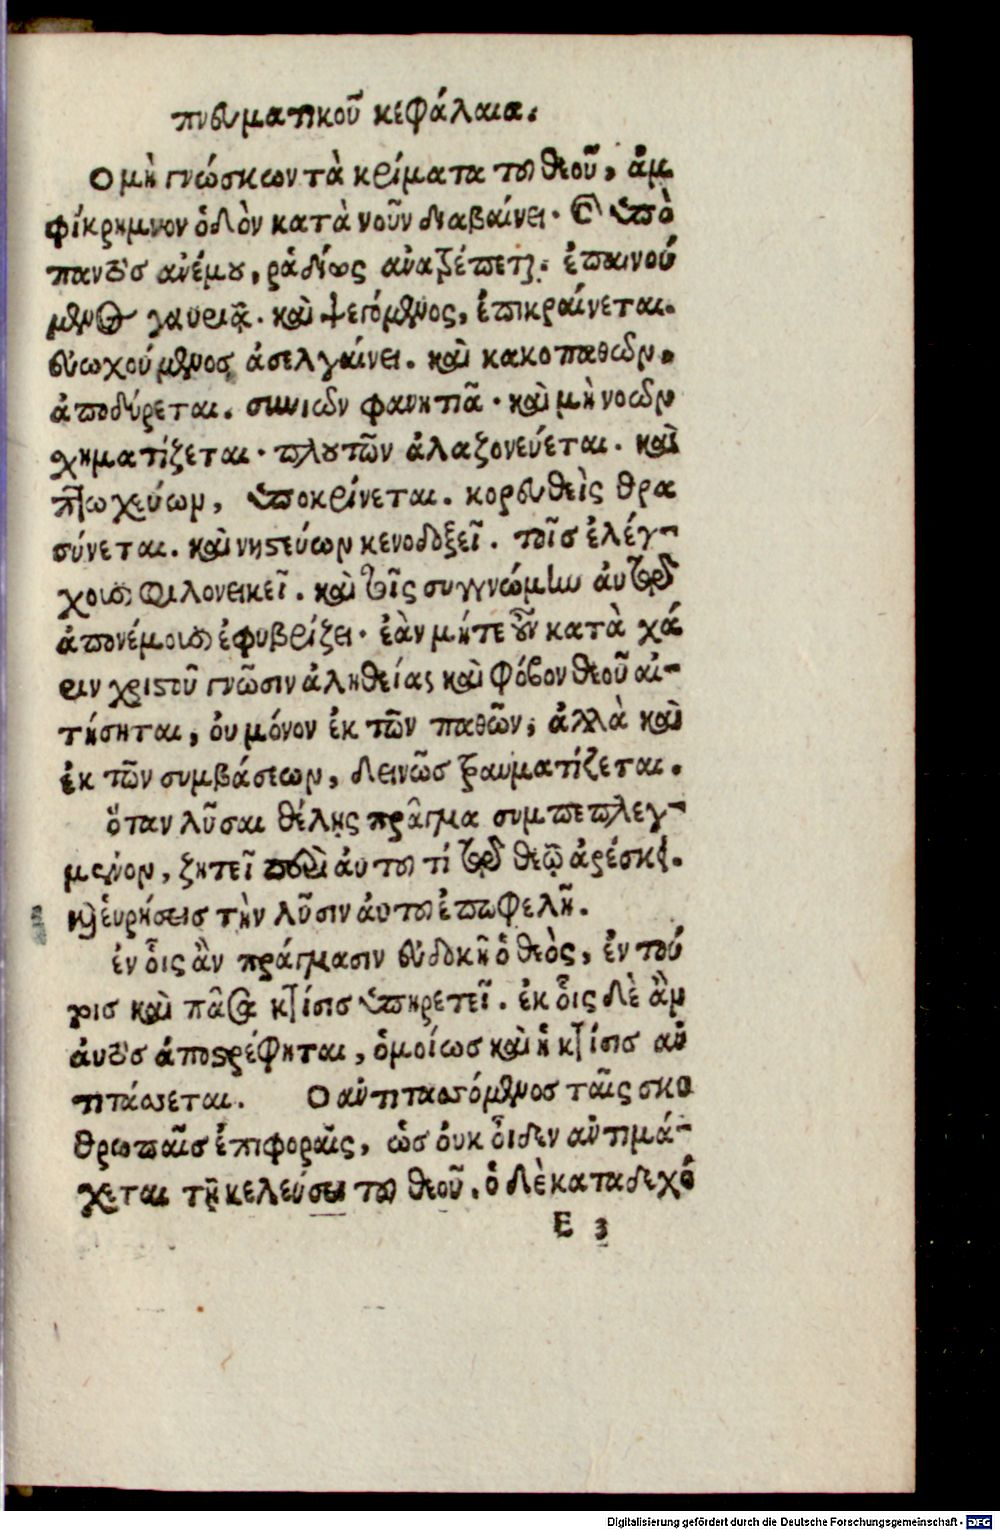 πνευματικοῦ κεφάλαια.
Ο μὴ γνώσκων τὰ κρίματα τοῦ θεοῦ, ἀμ
φίκρημνον ὁδὸν κατὰ νοῦν διαβαίνει· καὶ ὑπὸ
παντὸς ἀνέμου, ῥᾳδίως ἀνατρέπεται. ἐπαινού
μενος γαυριᾷ. καὶ ψεγόμενος, ἐπικραίνεται.
εὐωχούμενος ἀσελγαίνει. καὶ κακοπαθῶν,
ἀποδύρεται. συνιὼν φανητιᾶ· καὶ μὴ νοῶν
χηματίζεται· πλουτῶν ἀλαζονεύεται. καὶ
πτωχεύων, ὑποκρίνεται. κορευθεὶς θρα
σύνεται. καὶ νηστεύων κενοδοξεῖ. τοῖς ἐλέγ-
χουσι φιλονεικεῖ. καὶ τοῖς συγγνώμην ἀυτῷ
ἀπονέμουσι ἐφυβρίζει· ἐὰν μήτε οὖν κατὰ χά
ριν χριστοῦ γνῶσιν ἀληθείας καὶ φόβον θεοῦ αἰ-
τήσηται, ὀυ μόνον ἐκ τῶν παθῶν, ἀλλὰ καὶ
ἐκ τῶν συμβάσεων, δεινῶς τραυματίζεται.
ὅταν λῦσαι θέλῃς πρᾶγμα συμπεπλεγ-
μένον, ζητεῖ περὶ ἀυτοῦ τί τῷ θεῷ ἀρέσκει.
καὶ ἑυρήσεις τὴν λῦσιν ἀυτοῦ ἐπωφελῆ.
ἐν οἷς ἂν πράγμασιν εὐδοκῆ ὁ θεὸς, ἐν τού
τοις καὶ πᾶσα κτίσις ὑπηρετεῖ. ἐκ οἷς δὲ ἂν
ἀυτὸς ἀποστρέφηται, ὁμοίως καὶ ἡ κτίσις ἀν
τιτάσσεται. Ο ἀντιτασσόμενος ταῖς σκυ
θρωπαῖς ἐπιφοραῖς, ὡς ὀυκ οἶδεν ἀντιμά-
χεται τῇ κελεύσει τοῦ θεοῦ. ὁ δὲ καταδεχό
E 3
Digitalisierung gefördert durch die Deutsche Forschungsgemeinschaft · DFG